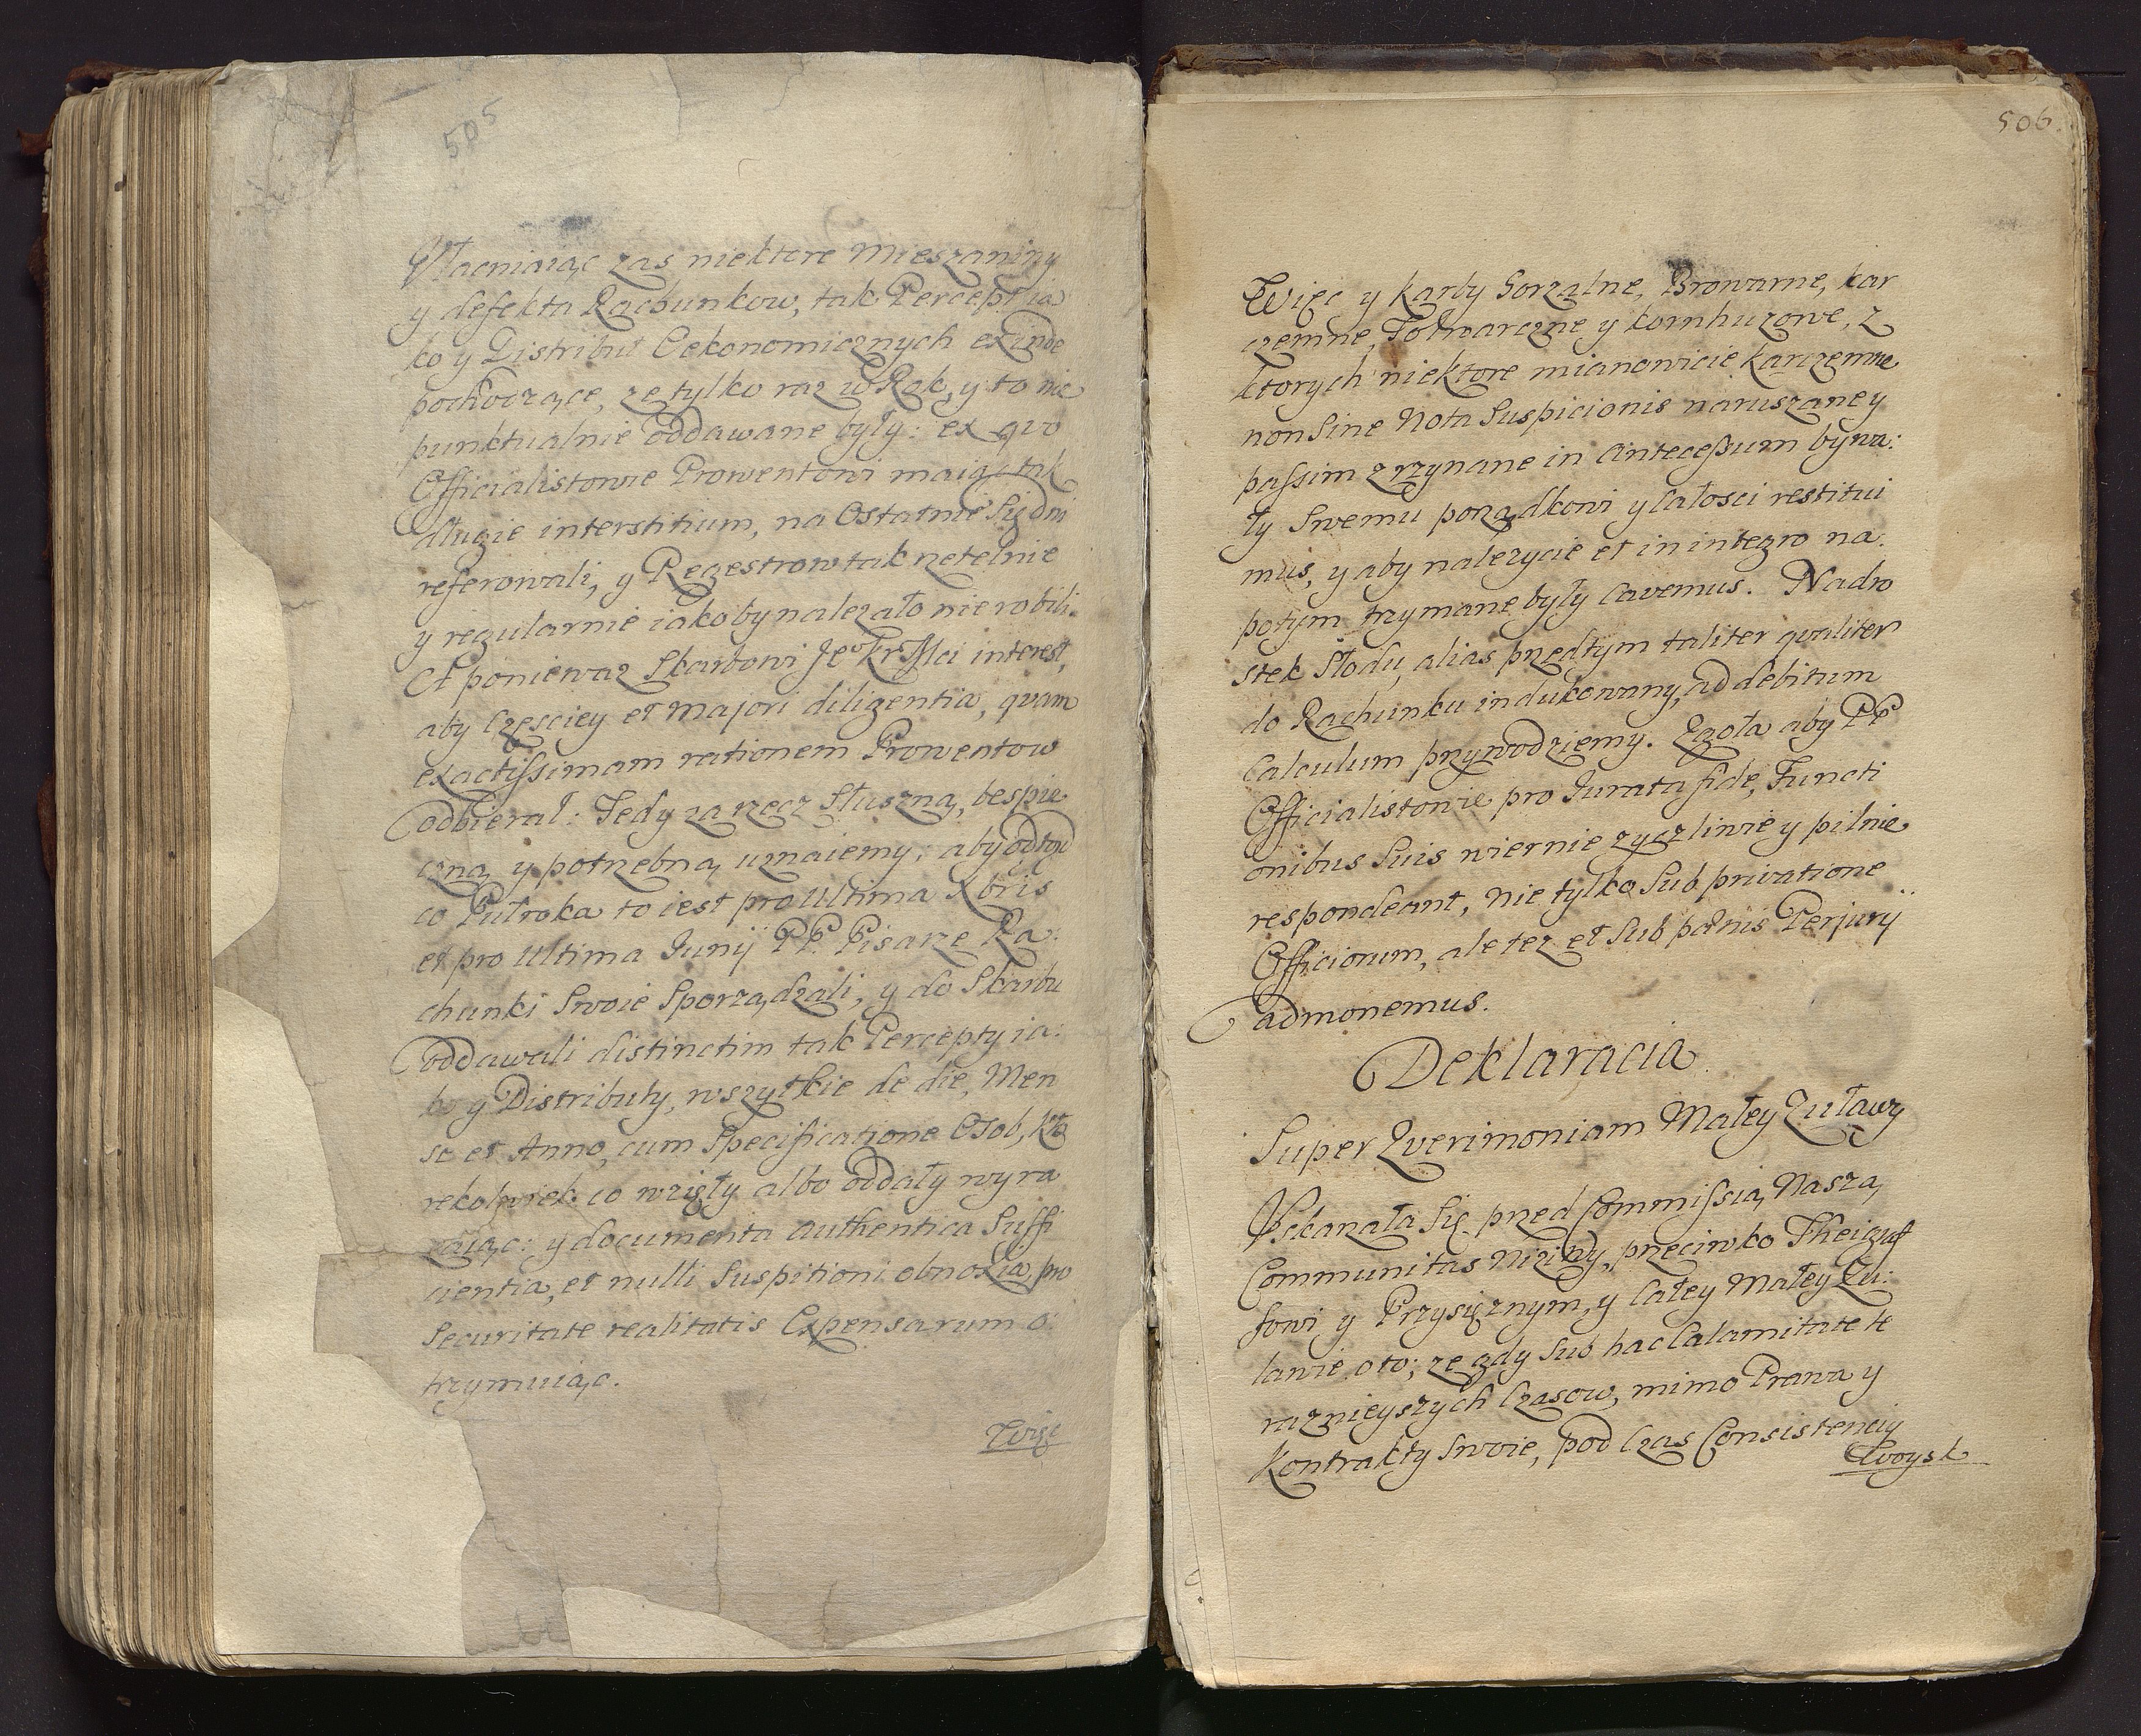 505
zas niektore Mieszaniny
y defekta Rachunkow, tak Percept ia
ko y Distribut Oekonomicznych exinde
pochodzące, ze tylko raz w Rok, y to nie
punktualnie oddawane były: ex quo
Officialistowie Prowentowi maiąc tak
długie interstitium, na Ostatnie Się dni
referowali, y Regestrow tak rzetelnie
y regularnie iakoby nalezało nie robili.
A poniewaz Skarbowi Je⁰ Kr Mci interest,
aby Częsciey et majori diligentia, quam
exactissimam rationem Prowentow
odbierał: Tedy za rzecz Słuszną, bespie
czną, y potrzebną uznaiemy; aby odtąd
co Pułroka to iest pro Ultima Xbris
et pro Ultima Junij PP. Pisarze Ra:
chunki Swoie Sporządzali, y do Skarbu
oddawali distinctim tak Percepty ia:
ko y Distributy, wszytkie de die, Men
se et Anno, cum Specificatione Osob, kto
rekolwiek co wzięły albo oddały wyra
zaiąc: y documenta authentica Suffi
cientia, et nulli Suspitioni obnoxia, pro
Securitate realitatis Expensarum o:
trzymuiąc.
Więc
506.
Więc y Karby Gorzalne, Browarne, kar
czemne, Folwarczne y kornhuzowe, z
ktorych niektore mianowicie karczemne
non Sine Nota Suspicionis naruszane y
passim zrzynane in Antecessum bywa:
ły Swemu porządkowi y Całosci restitui
mus, y aby nalezycie et in integro na
potym trzymane były Cavemus. Nadro
stek Słodu, alias przedtym taliter qualiter
do Rachunku indukowany, ad debitum
Calculum przywodziemy. Zgoła aby PP
Officialistowie pro Jurata fide, Functi
onibus Suis wiernie zyczliwie y pilnie
respondeant, nie tylko Sub privatione
Officiorum, ale tez et Sub pænis Perjurij
admonemus.
Deklaracia
Super Querimoniam Małey Zuławy
Uskarzała Się przed Commissią Naszą
Communitas Niziny, przeciwko Theigraf
fowi y Przysięznym, y Całey Małey Zu:
ławie oto; ze gdy Sub hac Calamitate te
raznieyszych Czasow, mimo Prawa y
Kontrakty Swoie, pod Czas Consistencij
Woysk